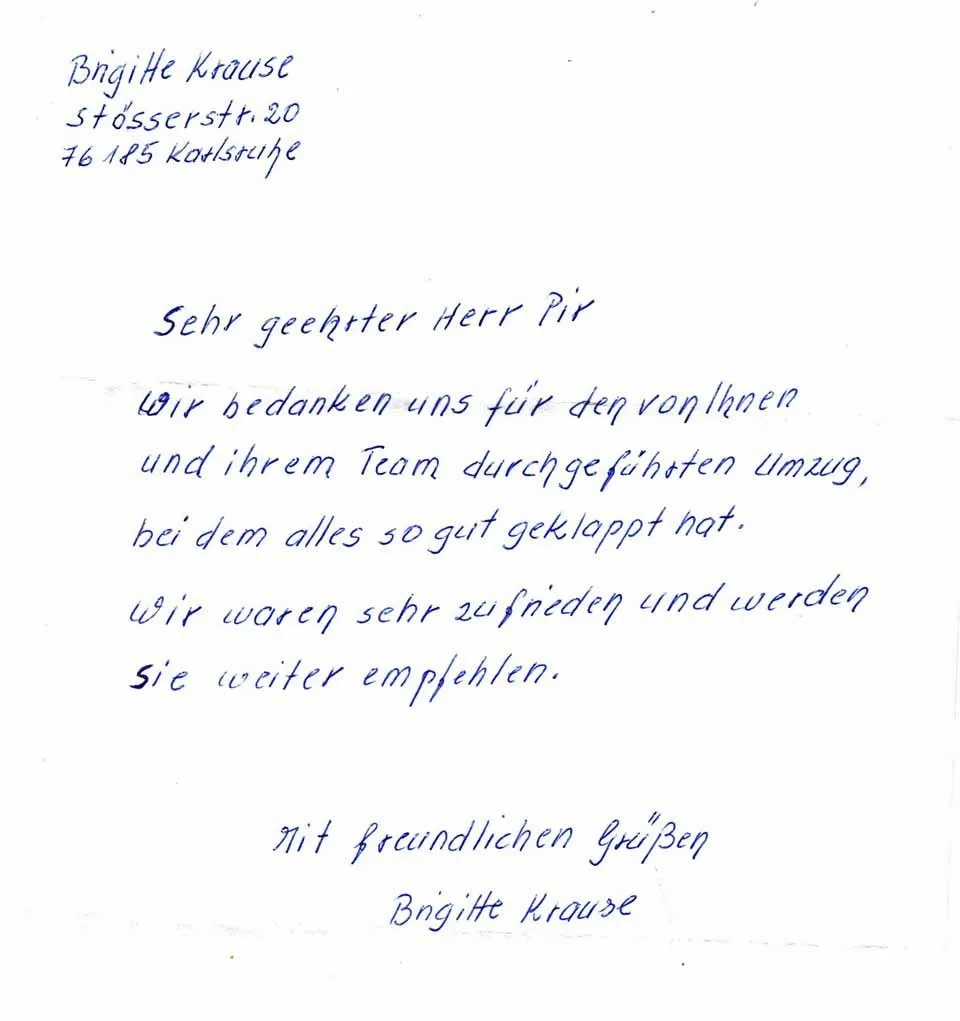 Brigitte Krause
Stösserstr. 20
76185 Karlsruhe
Sehr geehrter Herr Pir
Wir bedanken uns für den von Ihnen
und ihrem Team durchgeführten Umzug,
bei dem alles so gut geklappt hat.
Wir waren sehr zufrieden und werden
sie weiter empfehlen.
Mit freundlichen Grüßen
Brigitte Krause